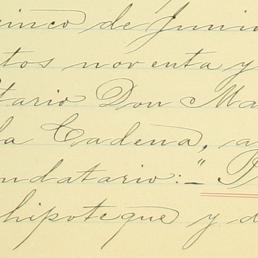 cinco de Junio
tos noventa y
tario Don Ma
la Cadena, a
ndatario:-"
hipoteque y d